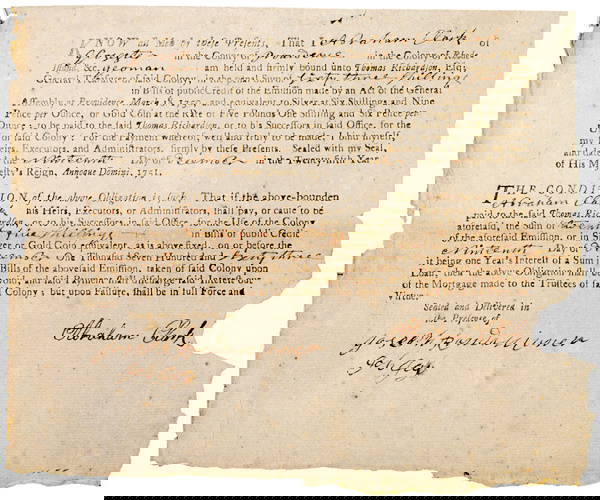 KNOW all Men by these Presents, That I Abraham Clark of
Glocester in the County of Providence in the Colony of Rhode-
Island, &c. Yeoman am held and firmly bound unto Thomas Richardson, Esq;
General Treasurer of said Colony, in the penal Sum of Shillings
in Bills of public Credit of the Emission made by an Act of the General
Assembly at Providence, March 18, 1750, and equivalent to Silver at Six Shillings and Nine
Pence per Ounce, or Gold Coin at the Rate of Five Pounds One Shilling and Six Pence per
Ounce; to be paid to the said Thomas Richardson, or to his Successors in said Office, for the
Use of said Colony: For the Payment whereof, well and truly to be made; I bind myself
my Heirs, Executors, and Administrators, firmly by these Presents. Sealed with my Seal,
and dated the Day of December in the Twenty-fifth Year
of His Majesty's Reign, Annoque Domini, 1751.
THE CONDI-
TION of the above Obligation is such, That if the above-bounden Abraham Clark
his Heirs, Executors, or Administrators, shall pay, or cause to be
paid to the said Thomas Richardson, or to his Successors in said Office, for the Use of the Colony
aforesaid, the Sum of in Bills of public Credit
of the aforesaid Emission, or in Silver or Gold Coin equivalent, as is above fixed, on or before the
Day of December One Thousand Seven Hundred and
it being one Year's Interest of a Sum in Bills of the abovesaid Emission, taken of said Colony upon
Loan; then the above Obligation shall be
of the Mortgage made to the Trustees of said Colony; but upon Failure, shall be in full Force and
Virtue.
Sealed and Delivered in
the Presence of
Abraham Clark